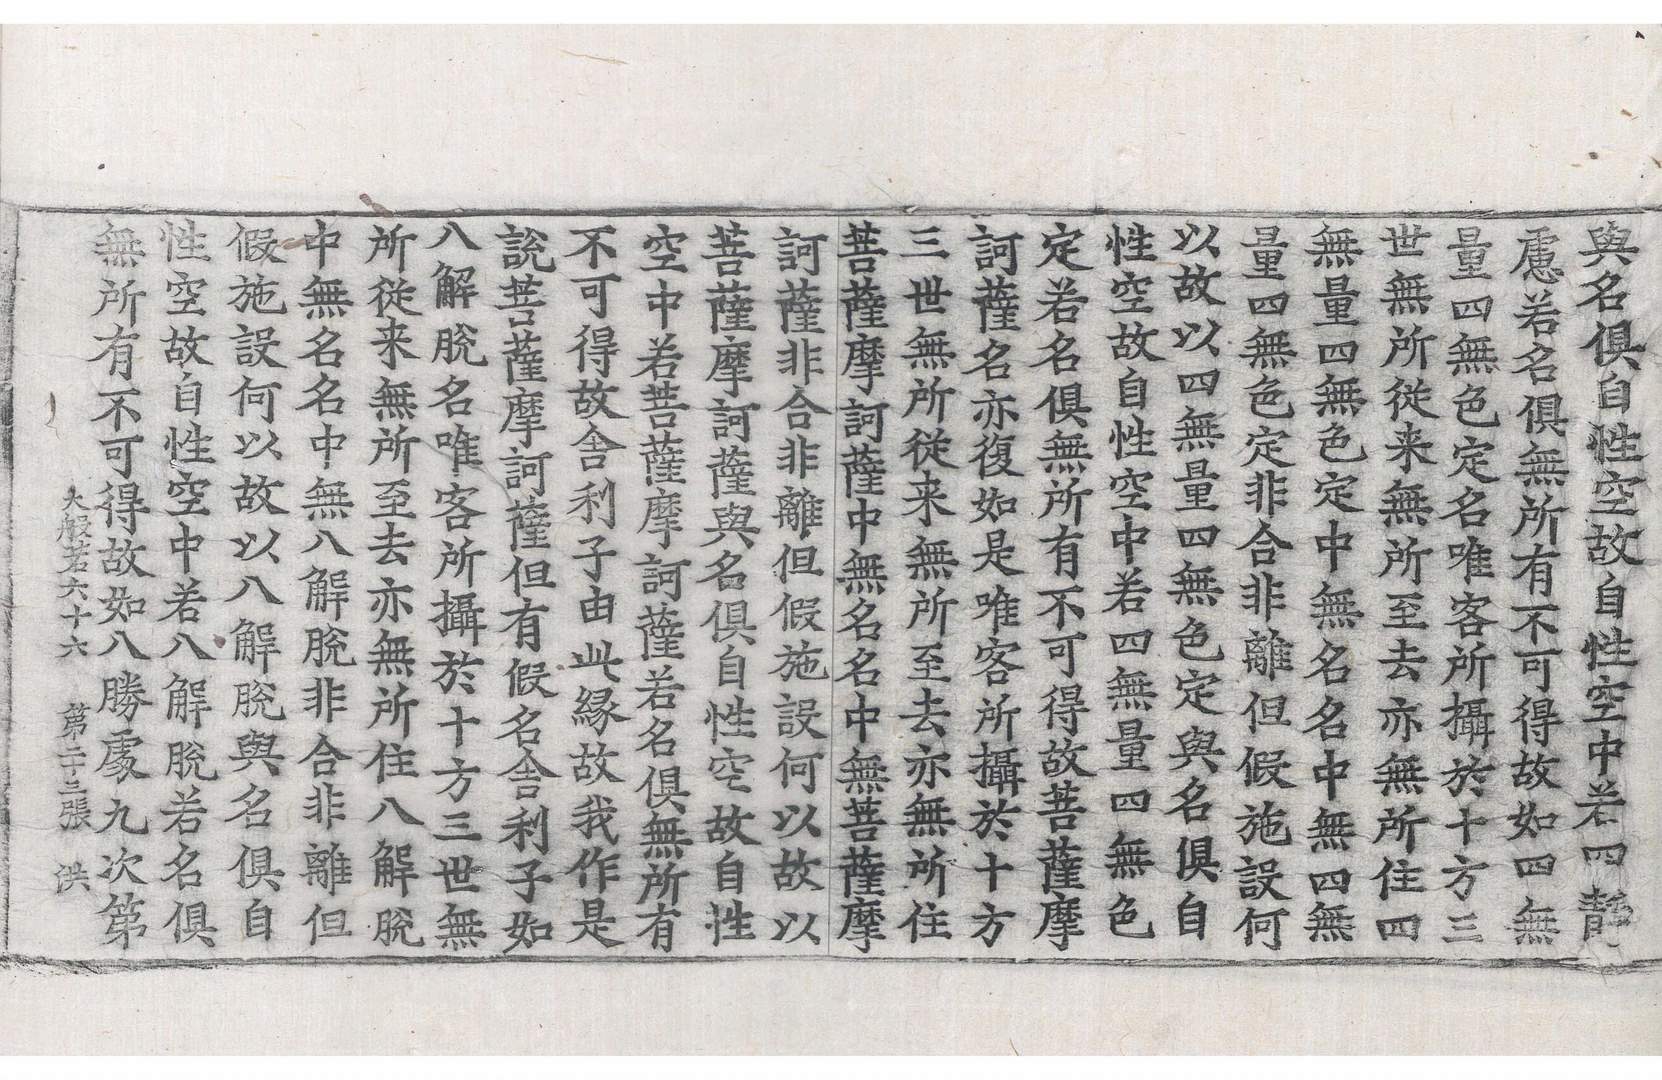 與名俱自性空故自性空中若四靜
慮若名俱無所有不可得故如四無
量四無色定名唯客所攝於十方三
世無所從来無所至去亦無所住四
無量四無色定中無名名中無四無
量四無色定非合非離但假施設何
以故以四無量四無色定與名俱自
性空故自性空中若四無量四無色
定若名俱無所有不可得故菩薩摩
訶薩名亦復如是唯客所攝於十方
三世無所從来無所至去亦無所住
菩薩摩訶薩中無名名中無菩薩摩
訶薩非合非離但假施設何以故以
菩薩摩訶薩與名俱自性空故自性
空中若菩薩摩訶薩若名俱無所有
不可得故舍利子由此緣故我作是
說菩薩摩訶薩但有假名舍利子如
八解脫名唯客所攝於十方三世無
所從来無所至去亦無所住八解脫
中無名名中無八解脫非合非離但
假施設何以故以八解脫與名俱自
性空故自性空中若八解脫若名俱
無所有不可得故如八勝處九次第
大般若六十六 第二十三張 洪